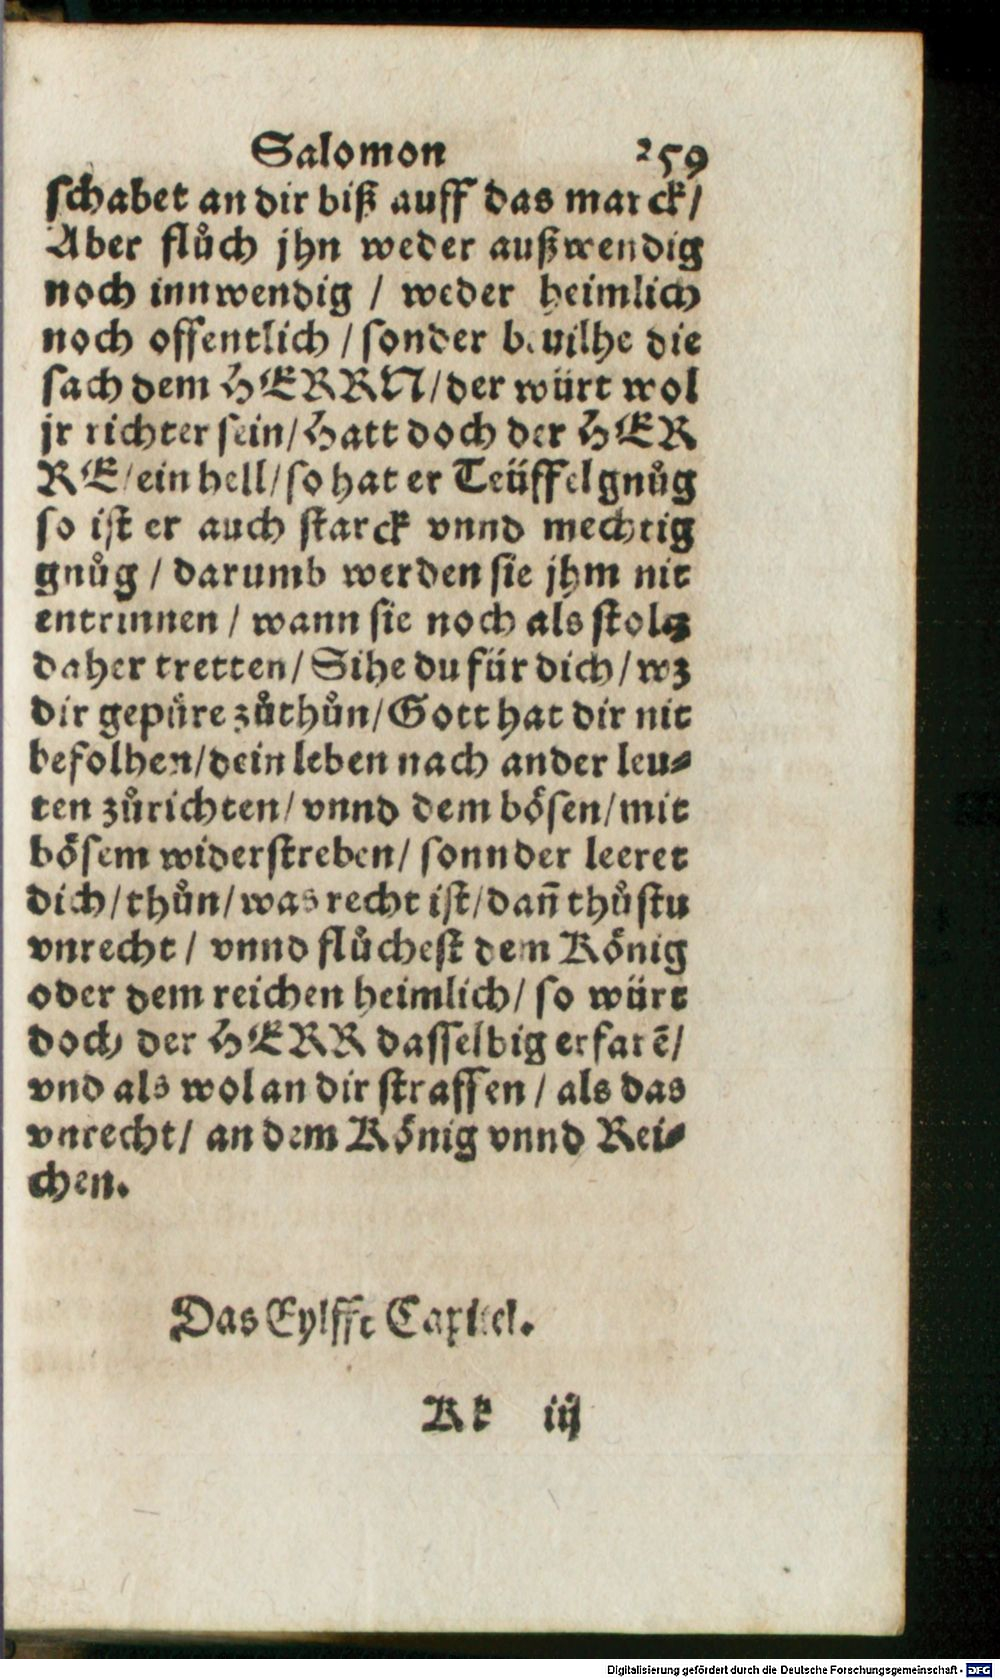 Salomon 259
schabet an dir biß auff das marck/
Aber flůch jhn weder außwendig
noch innwendig / weder heimlich
noch offentlich / sonder beuilhe die
sach dem HERRN/der würt wol
jr richter sein/Hatt doch der HER
RE/ein hell/so hat er Teüffel gnůg
so ist er auch starck vnnd mechtig
gnůg / darumb werden sie jhm nit
entrinnen / wann sie noch als stoltz
daher tretten/Sihe du für dich/wz
dir gepüre zůthůn/Gott hat dir nit
befolhen/dein leben nach ander leu-
ten zůrichten/vnnd dem bösen/mit
bösem widerstreben/sonnder leeret
dich/thůn/was recht ist/dañ thůstu
vnrecht / vnnd flůchest dem König
oder dem reichen heimlich/ so würt
doch der HERR dasselbig erfarē/
vnd als wol an dir straffen / als das
vnrecht/ an dem König vnnd Rei-
chen.
Das Eylffte Capitel.
Kk iij
Digitalisierung gefördert durch die Deutsche Forschungsgemeinschaft - DFG